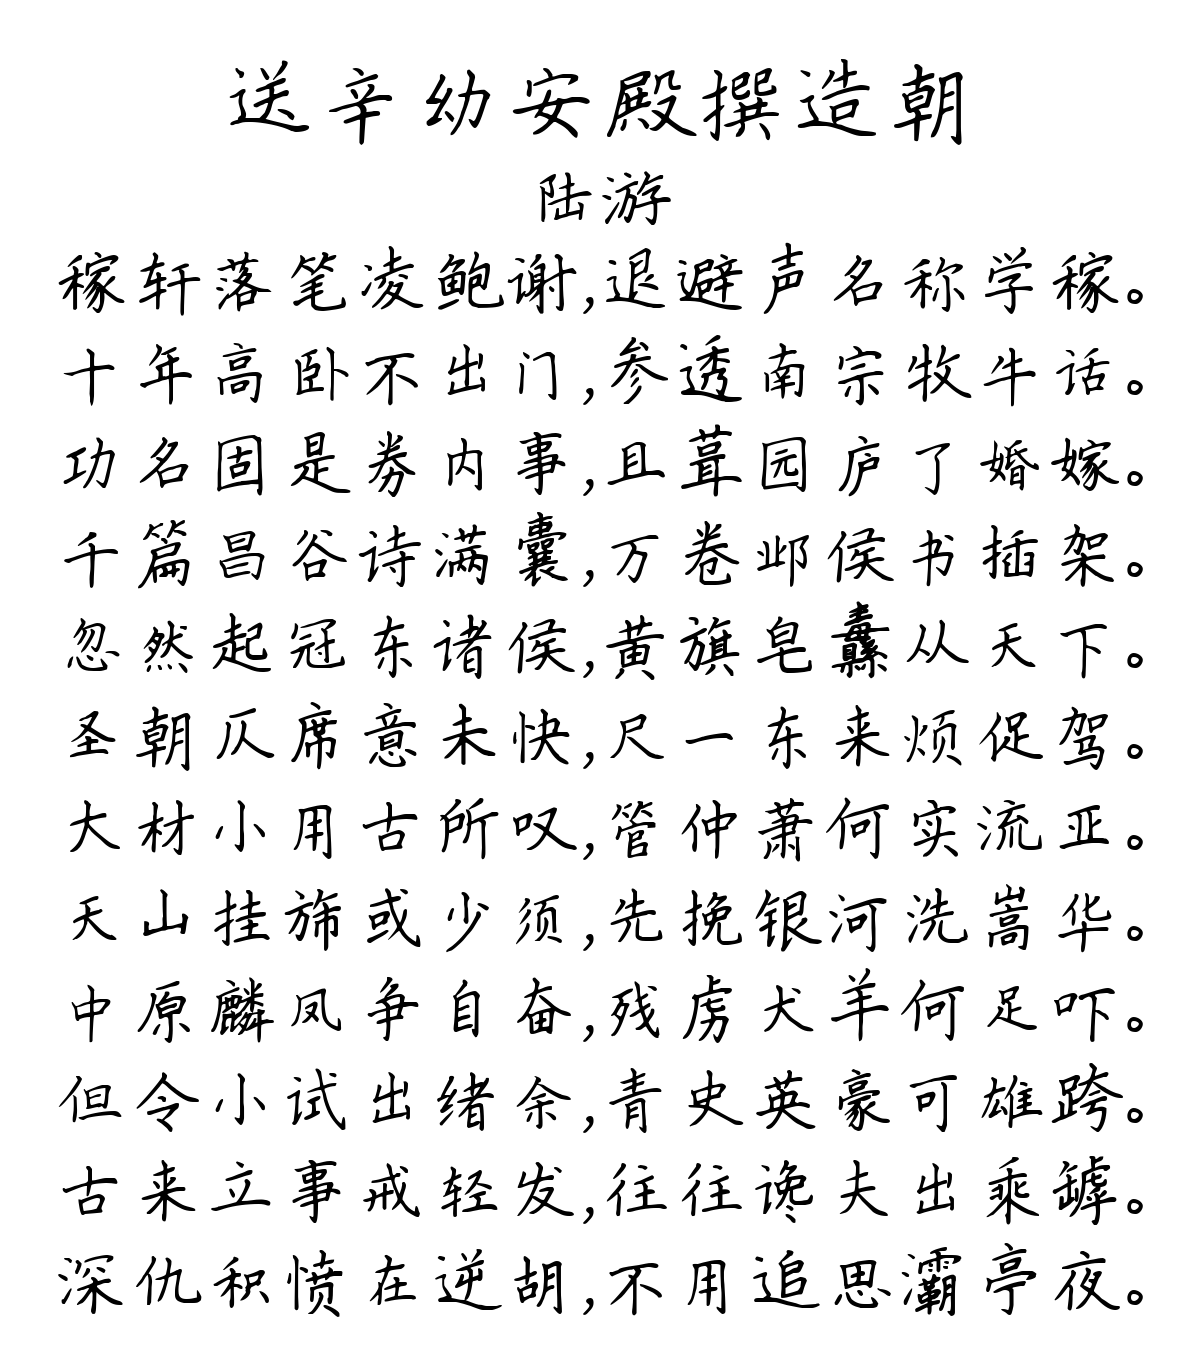 送辛幼安殿撰造朝
陆游
稼轩落笔凌鲍谢,退避声名称学稼。
十年高卧不出门,参透南宗牧牛话。
功名固是券内事,且葺园庐了婚嫁。
千篇昌谷诗满囊,万卷邺侯书插架。
忽然起冠东诸侯,黄旗皂纛从天下。
圣朝仄席意未快,尺一东来烦促驾。
大材小用古所叹,管仲萧何实流亚。
天山挂旆或少须,先挽银河洗嵩华。
中原麟凤争自奋,残虏犬羊何足吓。
但令小试出绪余,青史英豪可雄跨。
古来立事戒轻发,往往谗夫出乘罅。
深仇积愤在逆胡,不用追思灞亭夜。